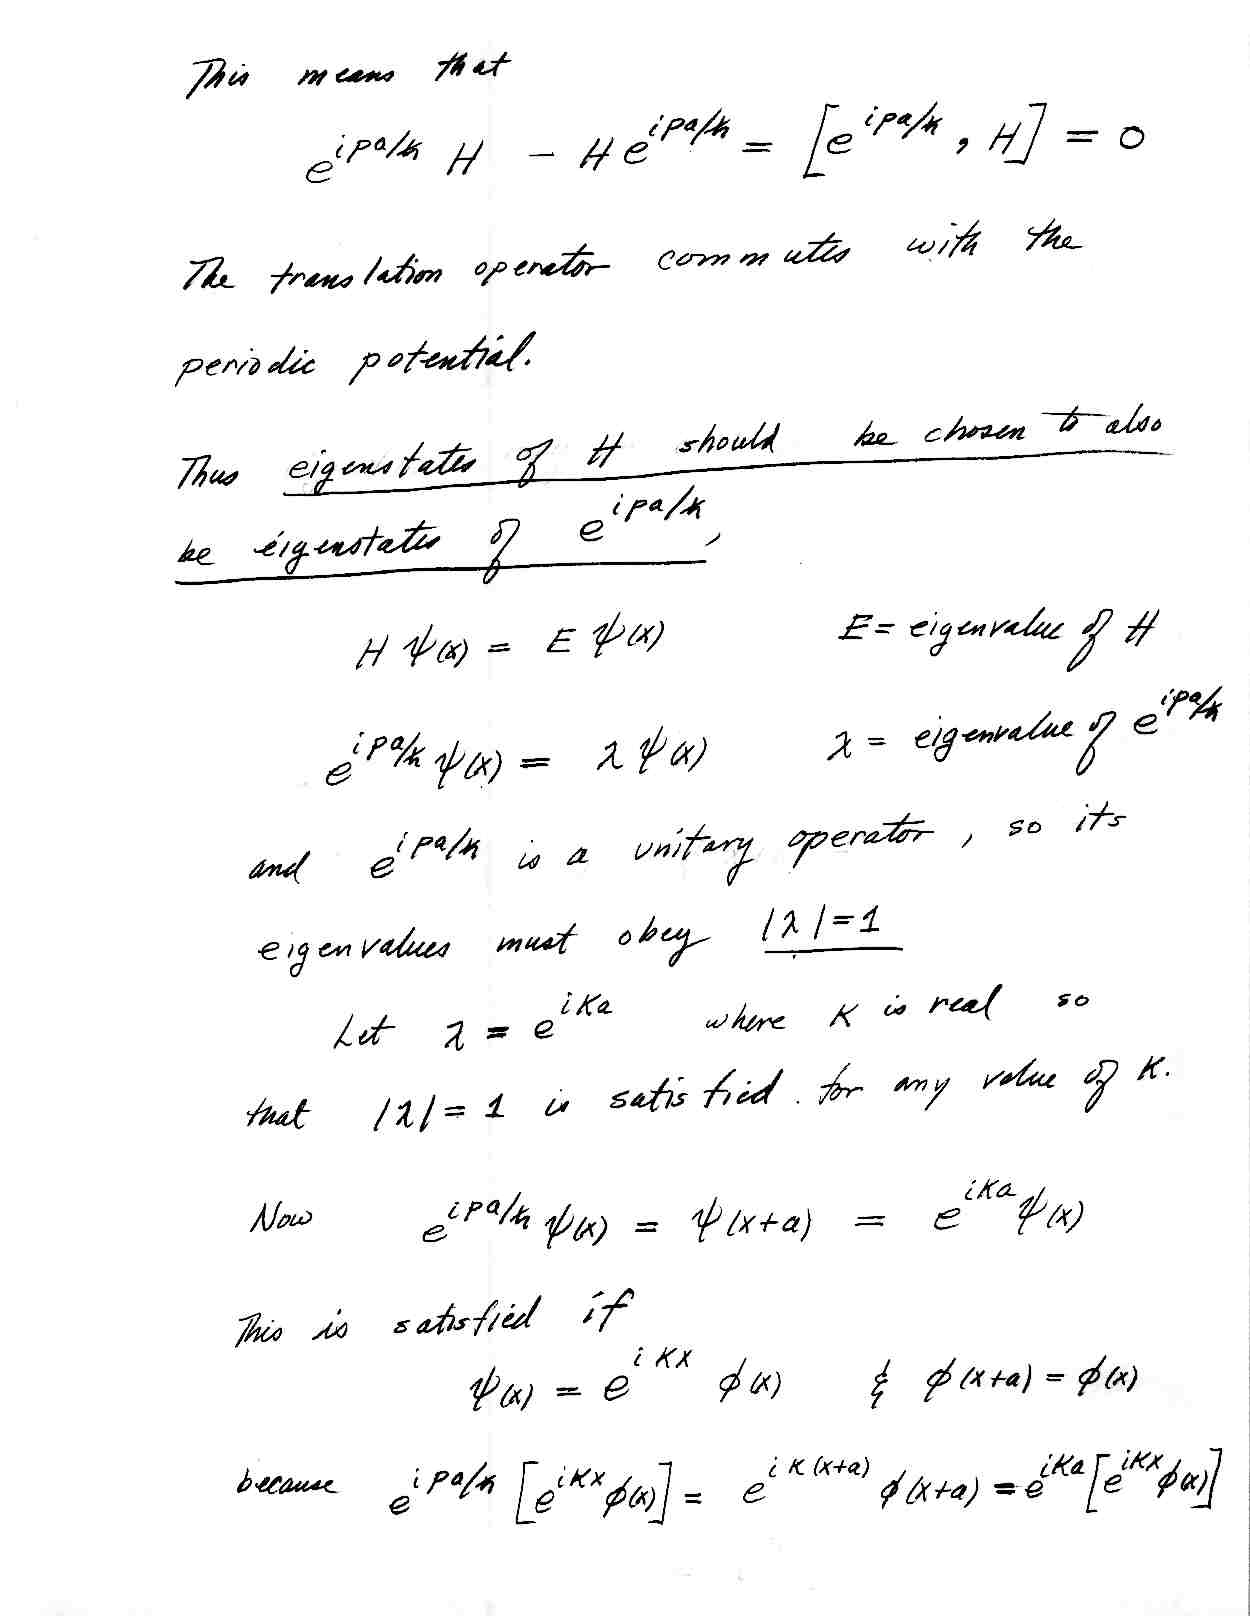 This means that
e^{ipa/ħ} H - H e^{ipa/ħ} = [e^{ipa/ħ}, H] = 0
The translation operator commutes with the
periodic potential.
Thus eigenstates of H should be chosen to also
be eigenstates of e^{ipa/ħ},
H ψ(x) = E ψ(x) E = eigenvalue of H
e^{ipa/ħ} ψ(x) = λ ψ(x) λ = eigenvalue of e^{ipa/ħ}
and e^{ipa/ħ} is a unitary operator, so its
eigenvalues must obey |λ| = 1
Let λ = e^{iKa} where K is real so
that |λ| = 1 is satisfied for any value of K.
Now e^{ipa/ħ} ψ(x) = ψ(x+a) = e^{iKa} ψ(x)
This is satisfied if
ψ(x) = e^{iKx} ϕ(x) & ϕ(x+a) = ϕ(x)
because e^{ipa/ħ} [e^{iKx} ϕ(x)] = e^{iK(x+a)} ϕ(x+a) = e^{iKa} [e^{iKx} ϕ(x)]